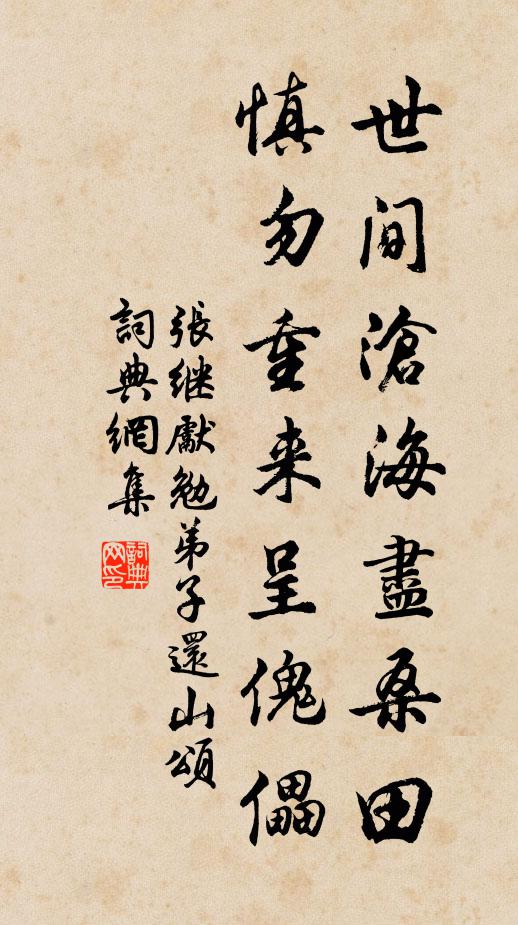 世间滄海盡桑田
慎勿重来呈傀儡
張继獻勉弟子還山頌
詞典網集
詞典网印